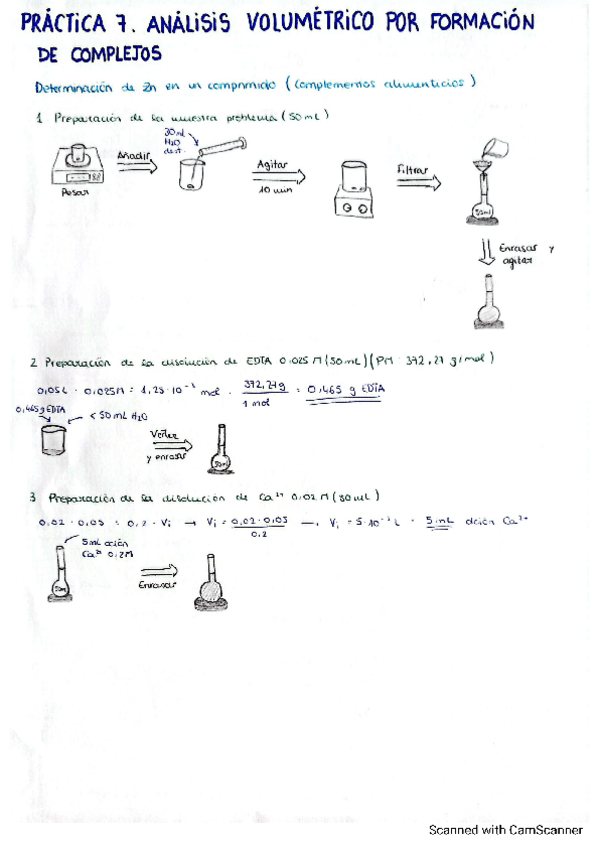 PRÁCTICA 7. ANÁLISIS VOLUMÉTRICO POR FORMACIÓN
DE COMPLEJOS
Determinación de Zn en un comprimido (complementos alimenticios)
1 Preparación de la muestra problema (50 mL)
30 mL
H2O
dest.
Añadir
Agitar
Filtrar
Pesar
10 min
50 ml
Enrasar y
agitar
2 Preparación de la disolución de EDTA 0.025 M (50 mL) (PM: 372,24 g/mol)
0,05L · 0,025M = 1,25·10⁻³ mol · 372,24g / 1 mol = 0,465 g EDTA
0,465g EDTA
< 50 mL H2O
Verter
y enrasar
50ml
3 Preparación de la disolución de Ca²⁺ 0.02 M (50 mL)
0,02 · 0,05 = 0,2 · Vi → Vi = 0,02·0,05 / 0,2 → Vi = 5·10⁻³ L = 5 mL dción Ca²⁺
5mL dción
Ca²⁺ 0,2M
50ml
Enrasar
Scanned with CamScanner